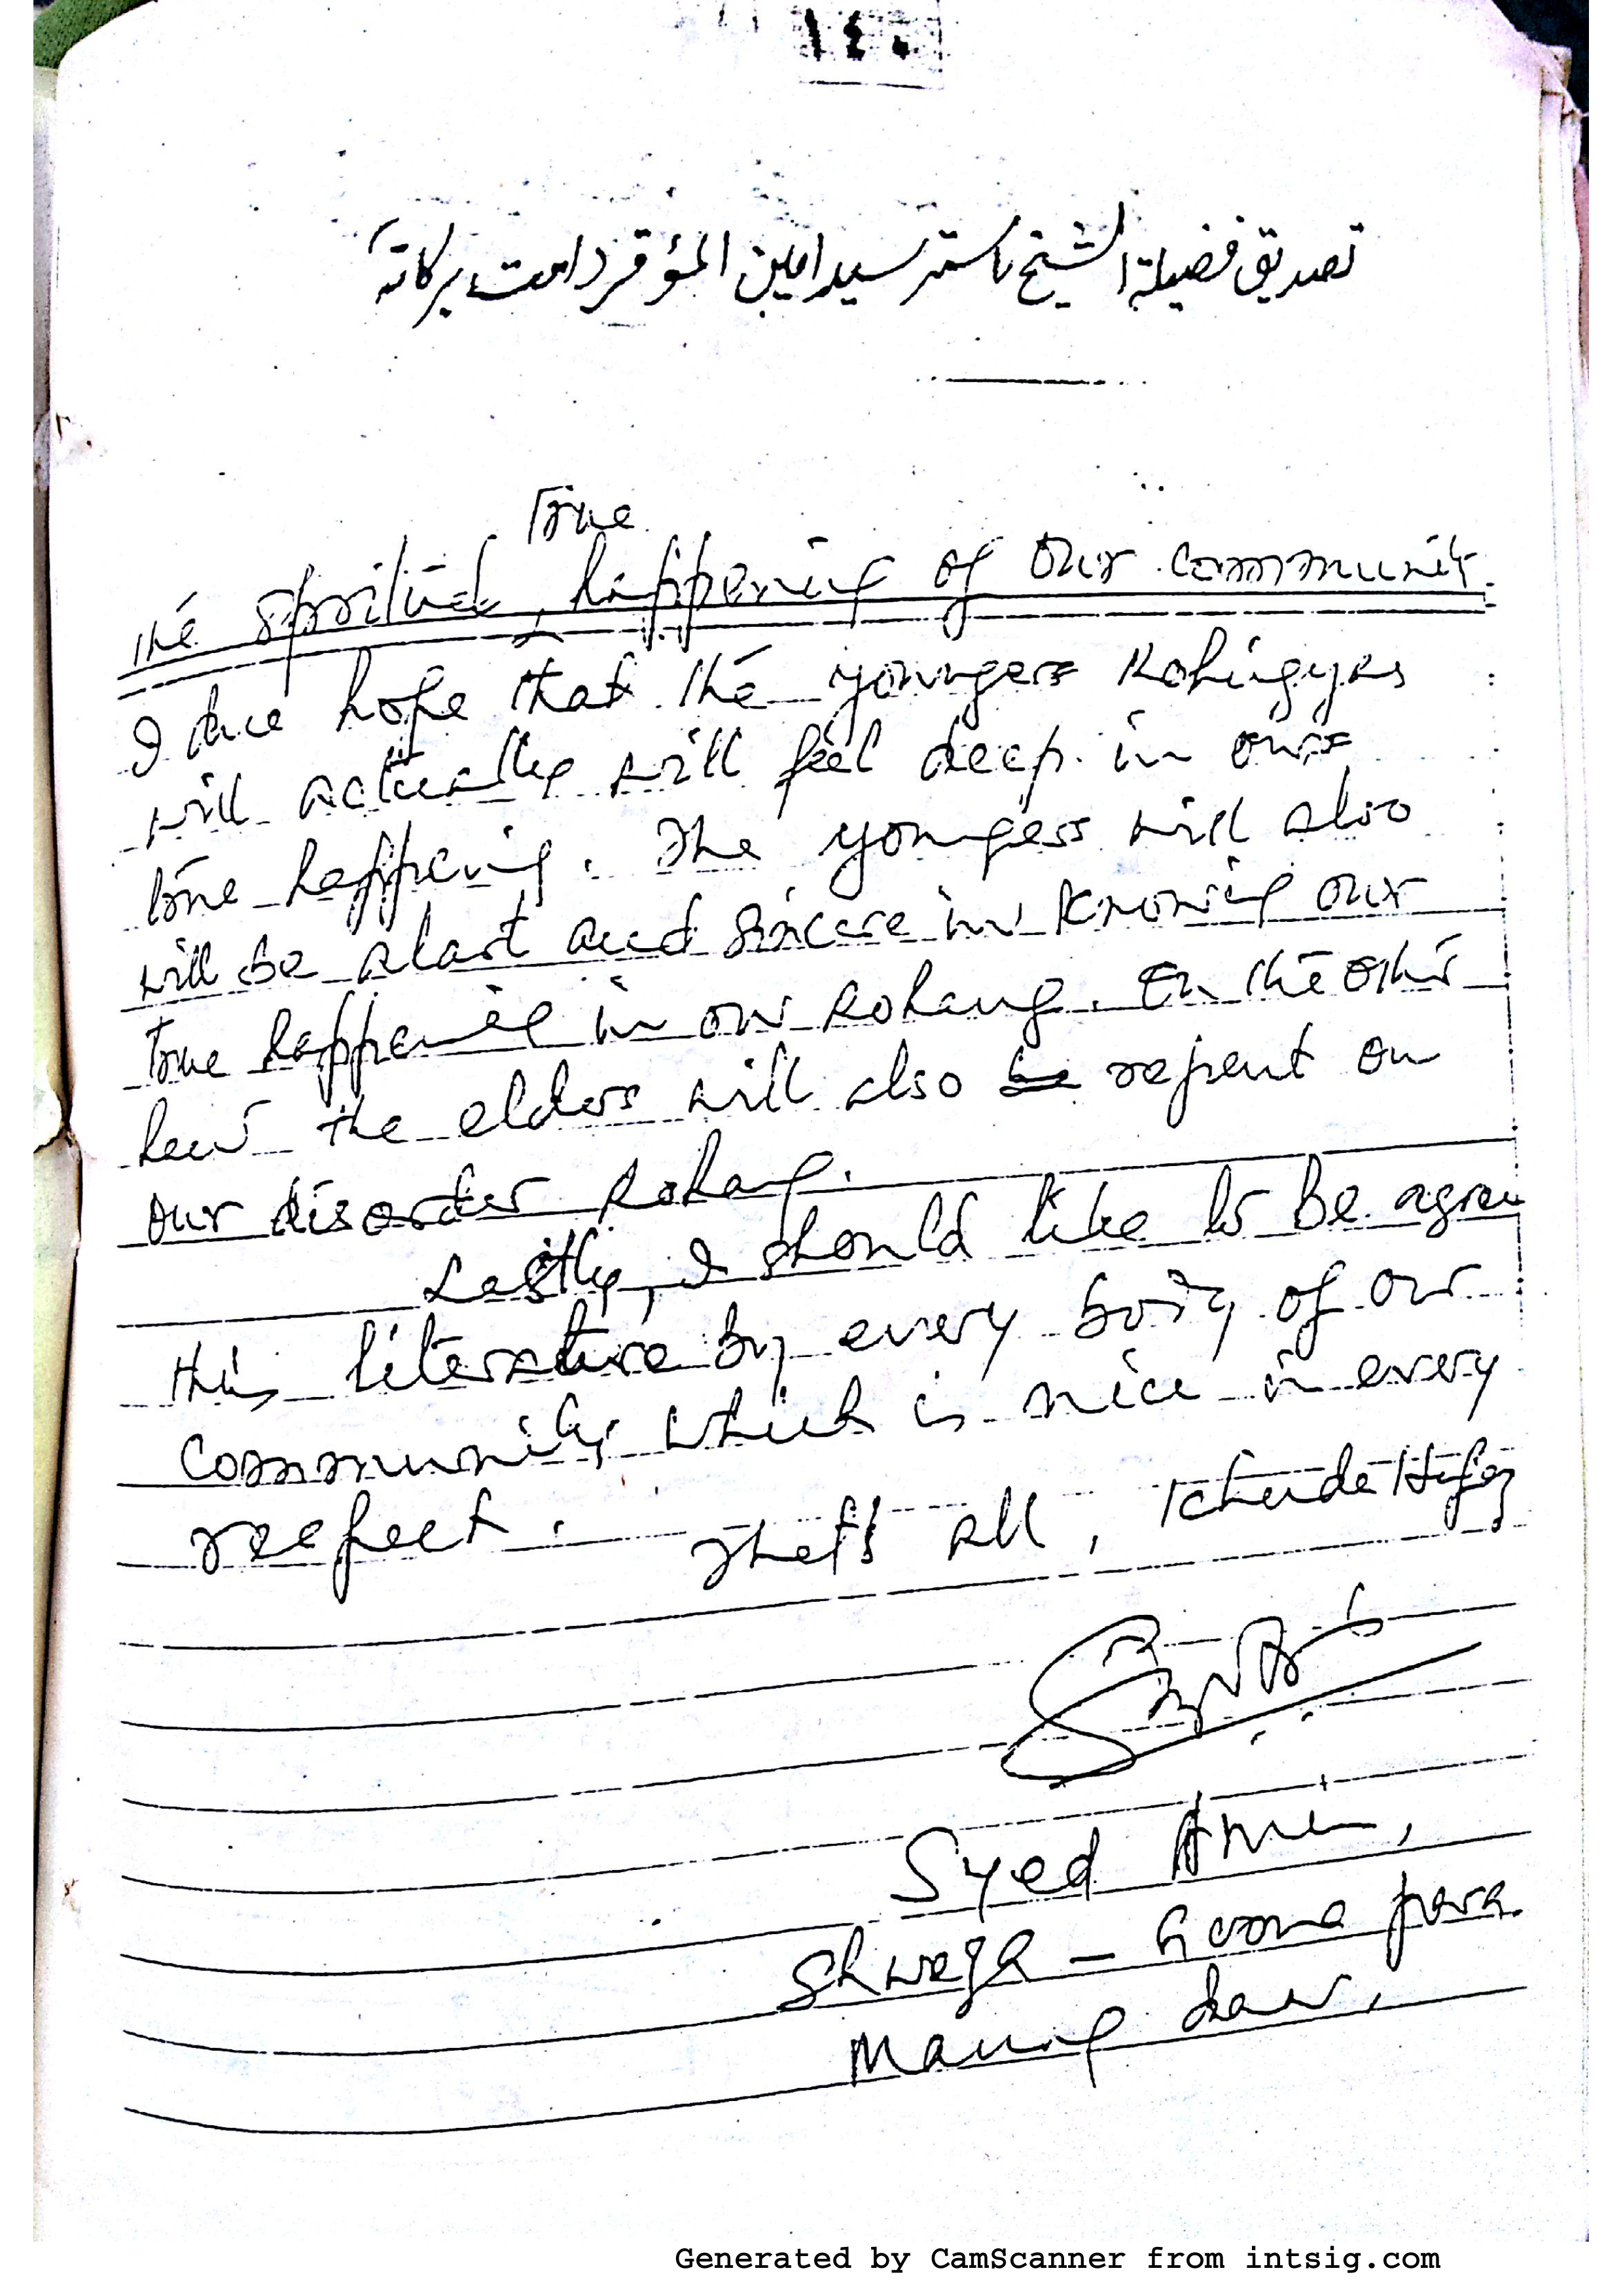 ١٤٠
تصديق فضيلة الشيخ ماستر سيد امين المؤقر دامت بركاته
True
the spritual, happening of our community
I hope that the younger Rohingyas
will actually will feel deep in our
true happening. The youngers will also
will be alart and sincere in knowing our
true happening in our Rohang. On the other
hand the elders will also be repent on
our disorder Rohang.
Lastly, I should like to be agree
this literature by every body of our
community which is nice in every
respect.
That's all, Khuda Hafez
Syed Amin,
Shwega - Goona para
Maung daw,
Generated by CamScanner from intsig.com